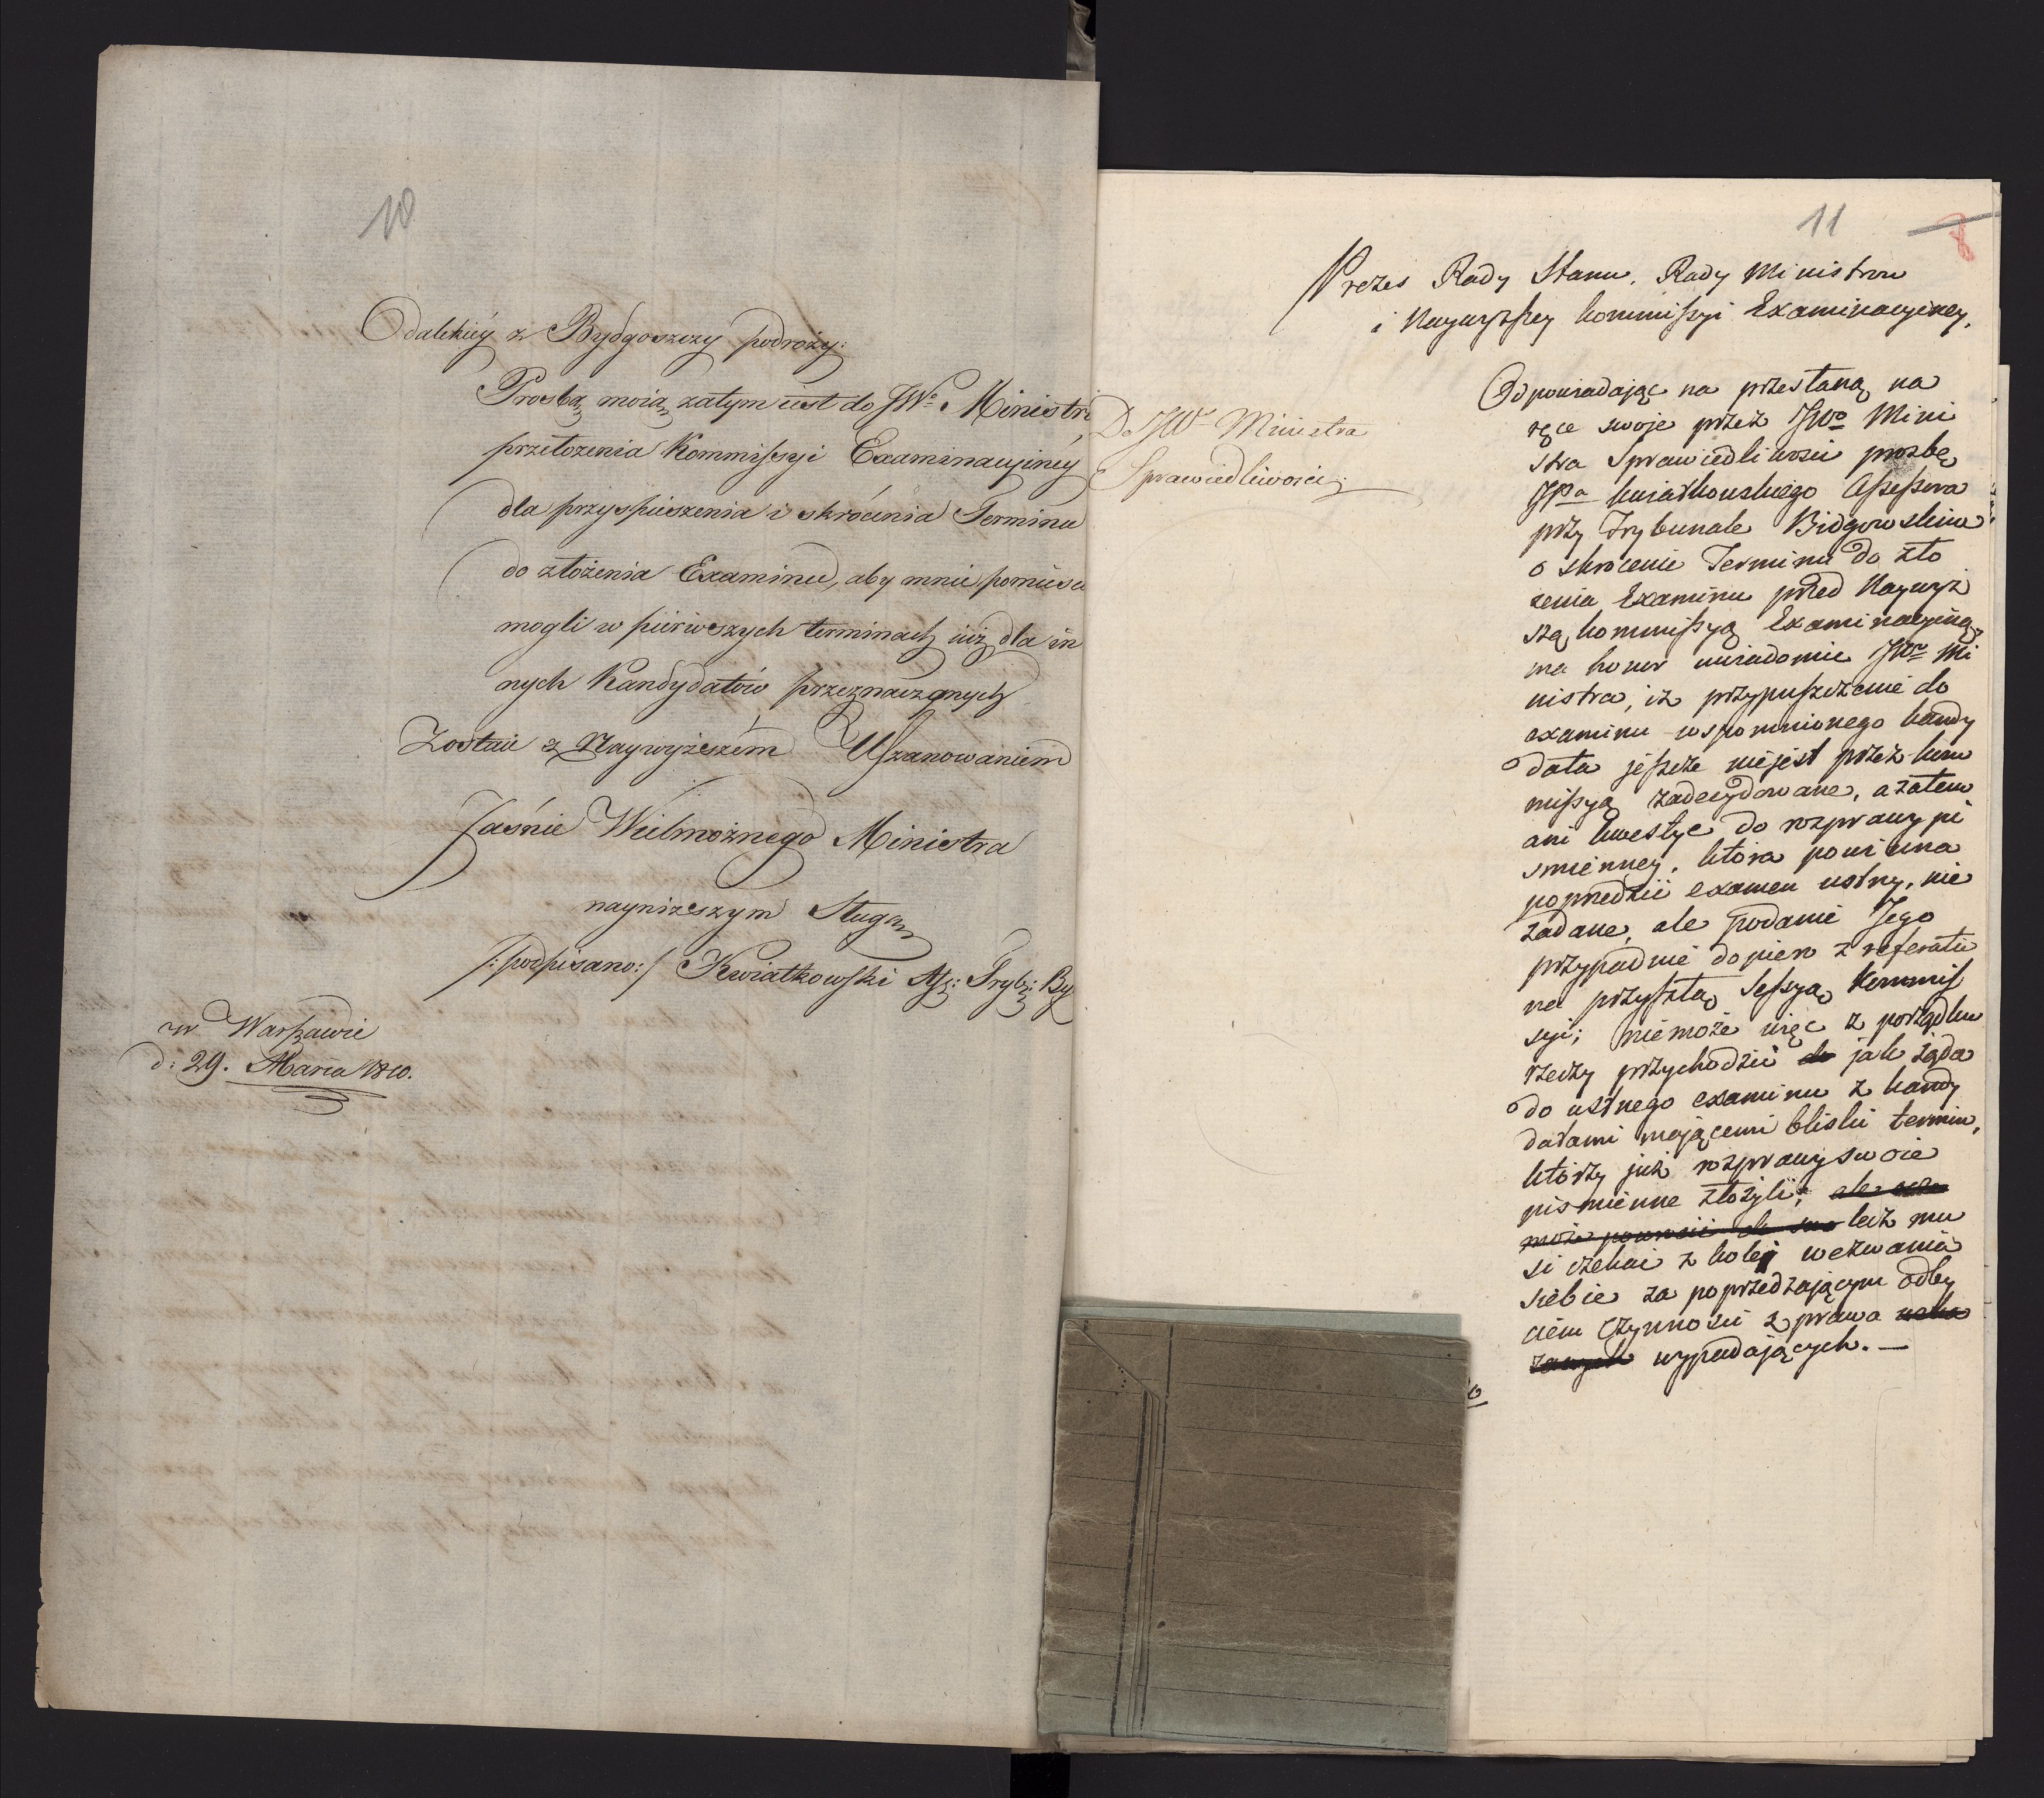 10
Odalekiéy z Bydgoszczy podroży:
Prosbą moią zatym iest do JWo Ministra
przełozenia Kommissyi Examinacyiney
dla przyspieszenia i skrócenia Terminu
do złożenia Examinu, aby mnie
mogli w pierwszych terminach iuż dla in
nych Kandydatów przeznaczonych
Zostaie z Naywyższém Uszanowaniem
Jaśnie Wielmożnego Ministra
nayniższym Sługą
/:podpisano:/ Kwiatkowski Ass: Tryb: By
w Warszawie
d: 29. Marca 1810.
11
8
Prezes Rady Stanu, Rady Ministrow
i Naywyższey Kommissyi Examinacyiney.
Do JWo Ministra
Sprawiedliwosci
Odpowiadając na przesłaną na
ręce swoje przez JWo Mini
stra Sprawiedliwosci prozbę
JPa Kwiatkowskiego Assessora
przy Trybunale Bidgowskim
o skrocenie Terminu do zło
zenia Examinu przed Naywyż
szą Kommissyą Examinacyiną,
ma honor uwiadomic JWo Mi
nistra, iż przypuszczenie do
examinu wspomnionego Kandy
data jeszcze niejest przez Kom
missyą zadecydowane, a zatem
ani kwestye do rozprawy pi
smienney, która powinna
poprzedzić examen ustny, nie
zadane, ale podanie Jego
przypadnie dopiero z referatu
na przyszłą Sessyą Kommis
syi; niemoże więc z porządku
rzeczy przychodzić do jak żąda
do ustnego examinu z kandy
datami mającemi bliski termin,
którzy już rozprawy swoie
pismienne złożyli; ale
może powrocić do lecz mu
si czekać z koleji wezwania
siebie za poprzedzającym odby
ciem czynnosci z prawa
wypadających. —